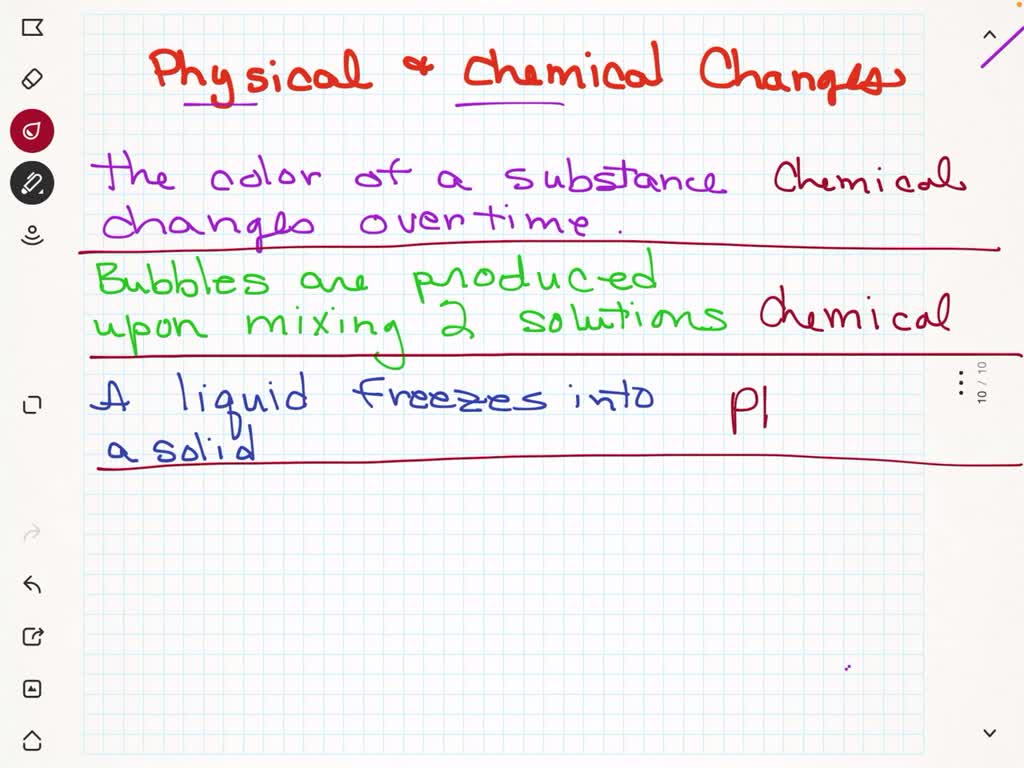 Physical & Chemical Changes
The color of a substance Chemical
changes over time.
Bubbles are produced
upon mixing 2 solutions Chemical
A liquid freezes into Pl
a solid
10 / 10